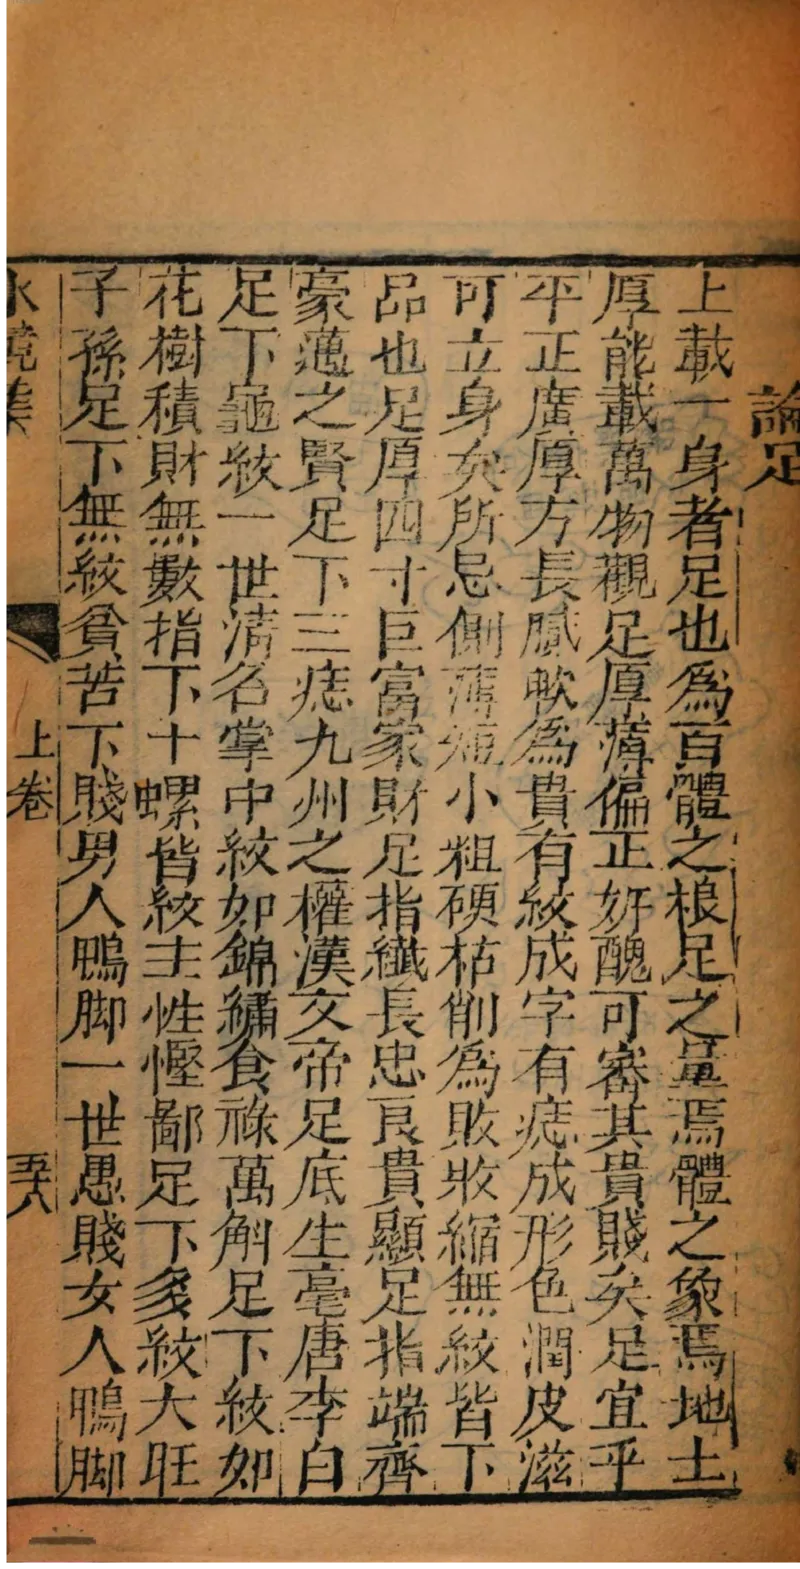 論足
上載一身者足也為百體之根足之量焉體之象焉地土
厚能載萬物觀足厚薄偏正好醜可審其貴賤矣足宜乎
平正廣厚方長膩軟為貴有紋成字有痣成形色潤皮滋
可立身矣所忌側薄短小粗硬枯削為敗收縮無紋皆下
品也足厚四寸巨富家財足指纖長忠良貴顯足指端齊
豪邁之賢足下三痣九州之權漢文帝足底生毫唐李白
足下龜紋一世清名掌中紋如錦繡食祿萬斛足下紋如
花樹積財無數指下十螺皆紋主性慳鄙足下多紋大旺
子孫足下無紋貧苦下賤男人鴨脚一世愚賤女人鴨脚
水鏡集
上卷
五十八